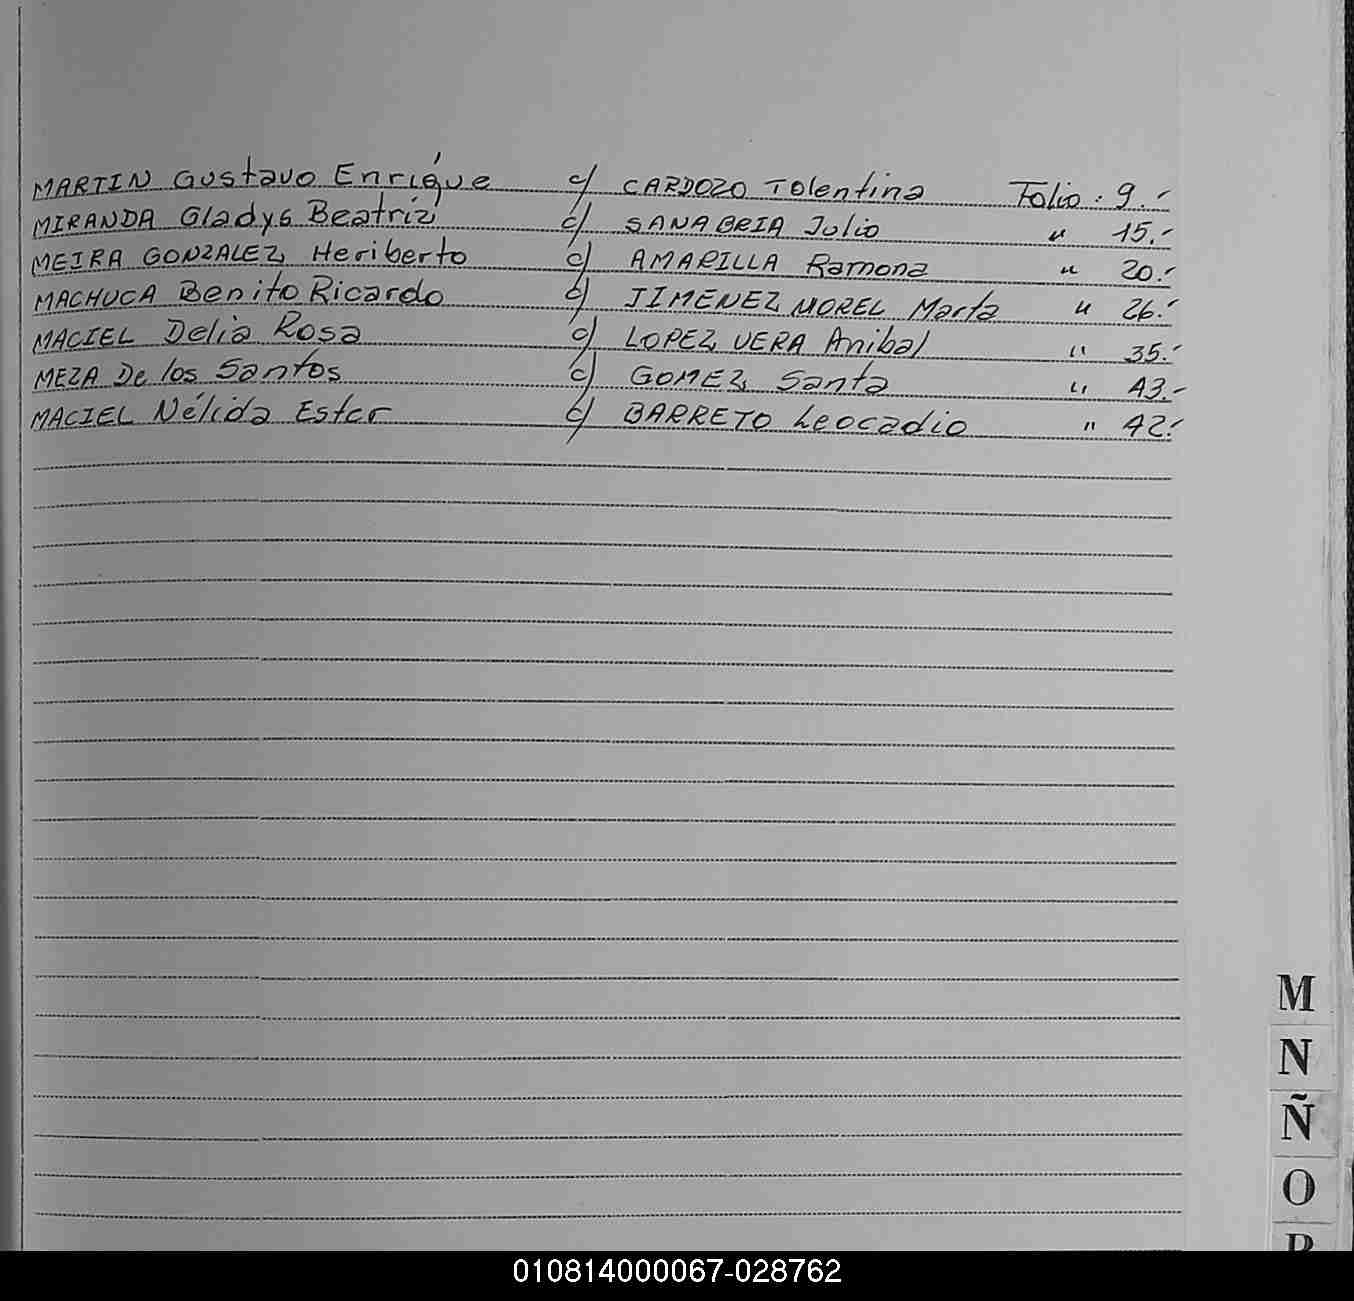 MARTIN Gustavo Enrique c/ CARDOZO Tolentina Folio. 9.-
MIRANDA Gladys Beatríz c/ SANABRIA Julio " 15.-
MEIRA GONZALEZ, Heriberto c/ AMARILLA Ramona " 20.-
MACHUCA Benito Ricardo c/ JIMENEZ MOREL Marta " 26.-
MACIEL Delia Rosa c/ LOPEZ VERA Anibal " 35.-
MEZA De los Santos c/ GOMEZ, Santa " 43.-
MACIEL Nélida Ester c/ BARRETO Leocadio " 42.-
M
N
Ñ
O
P
010814000067-028762